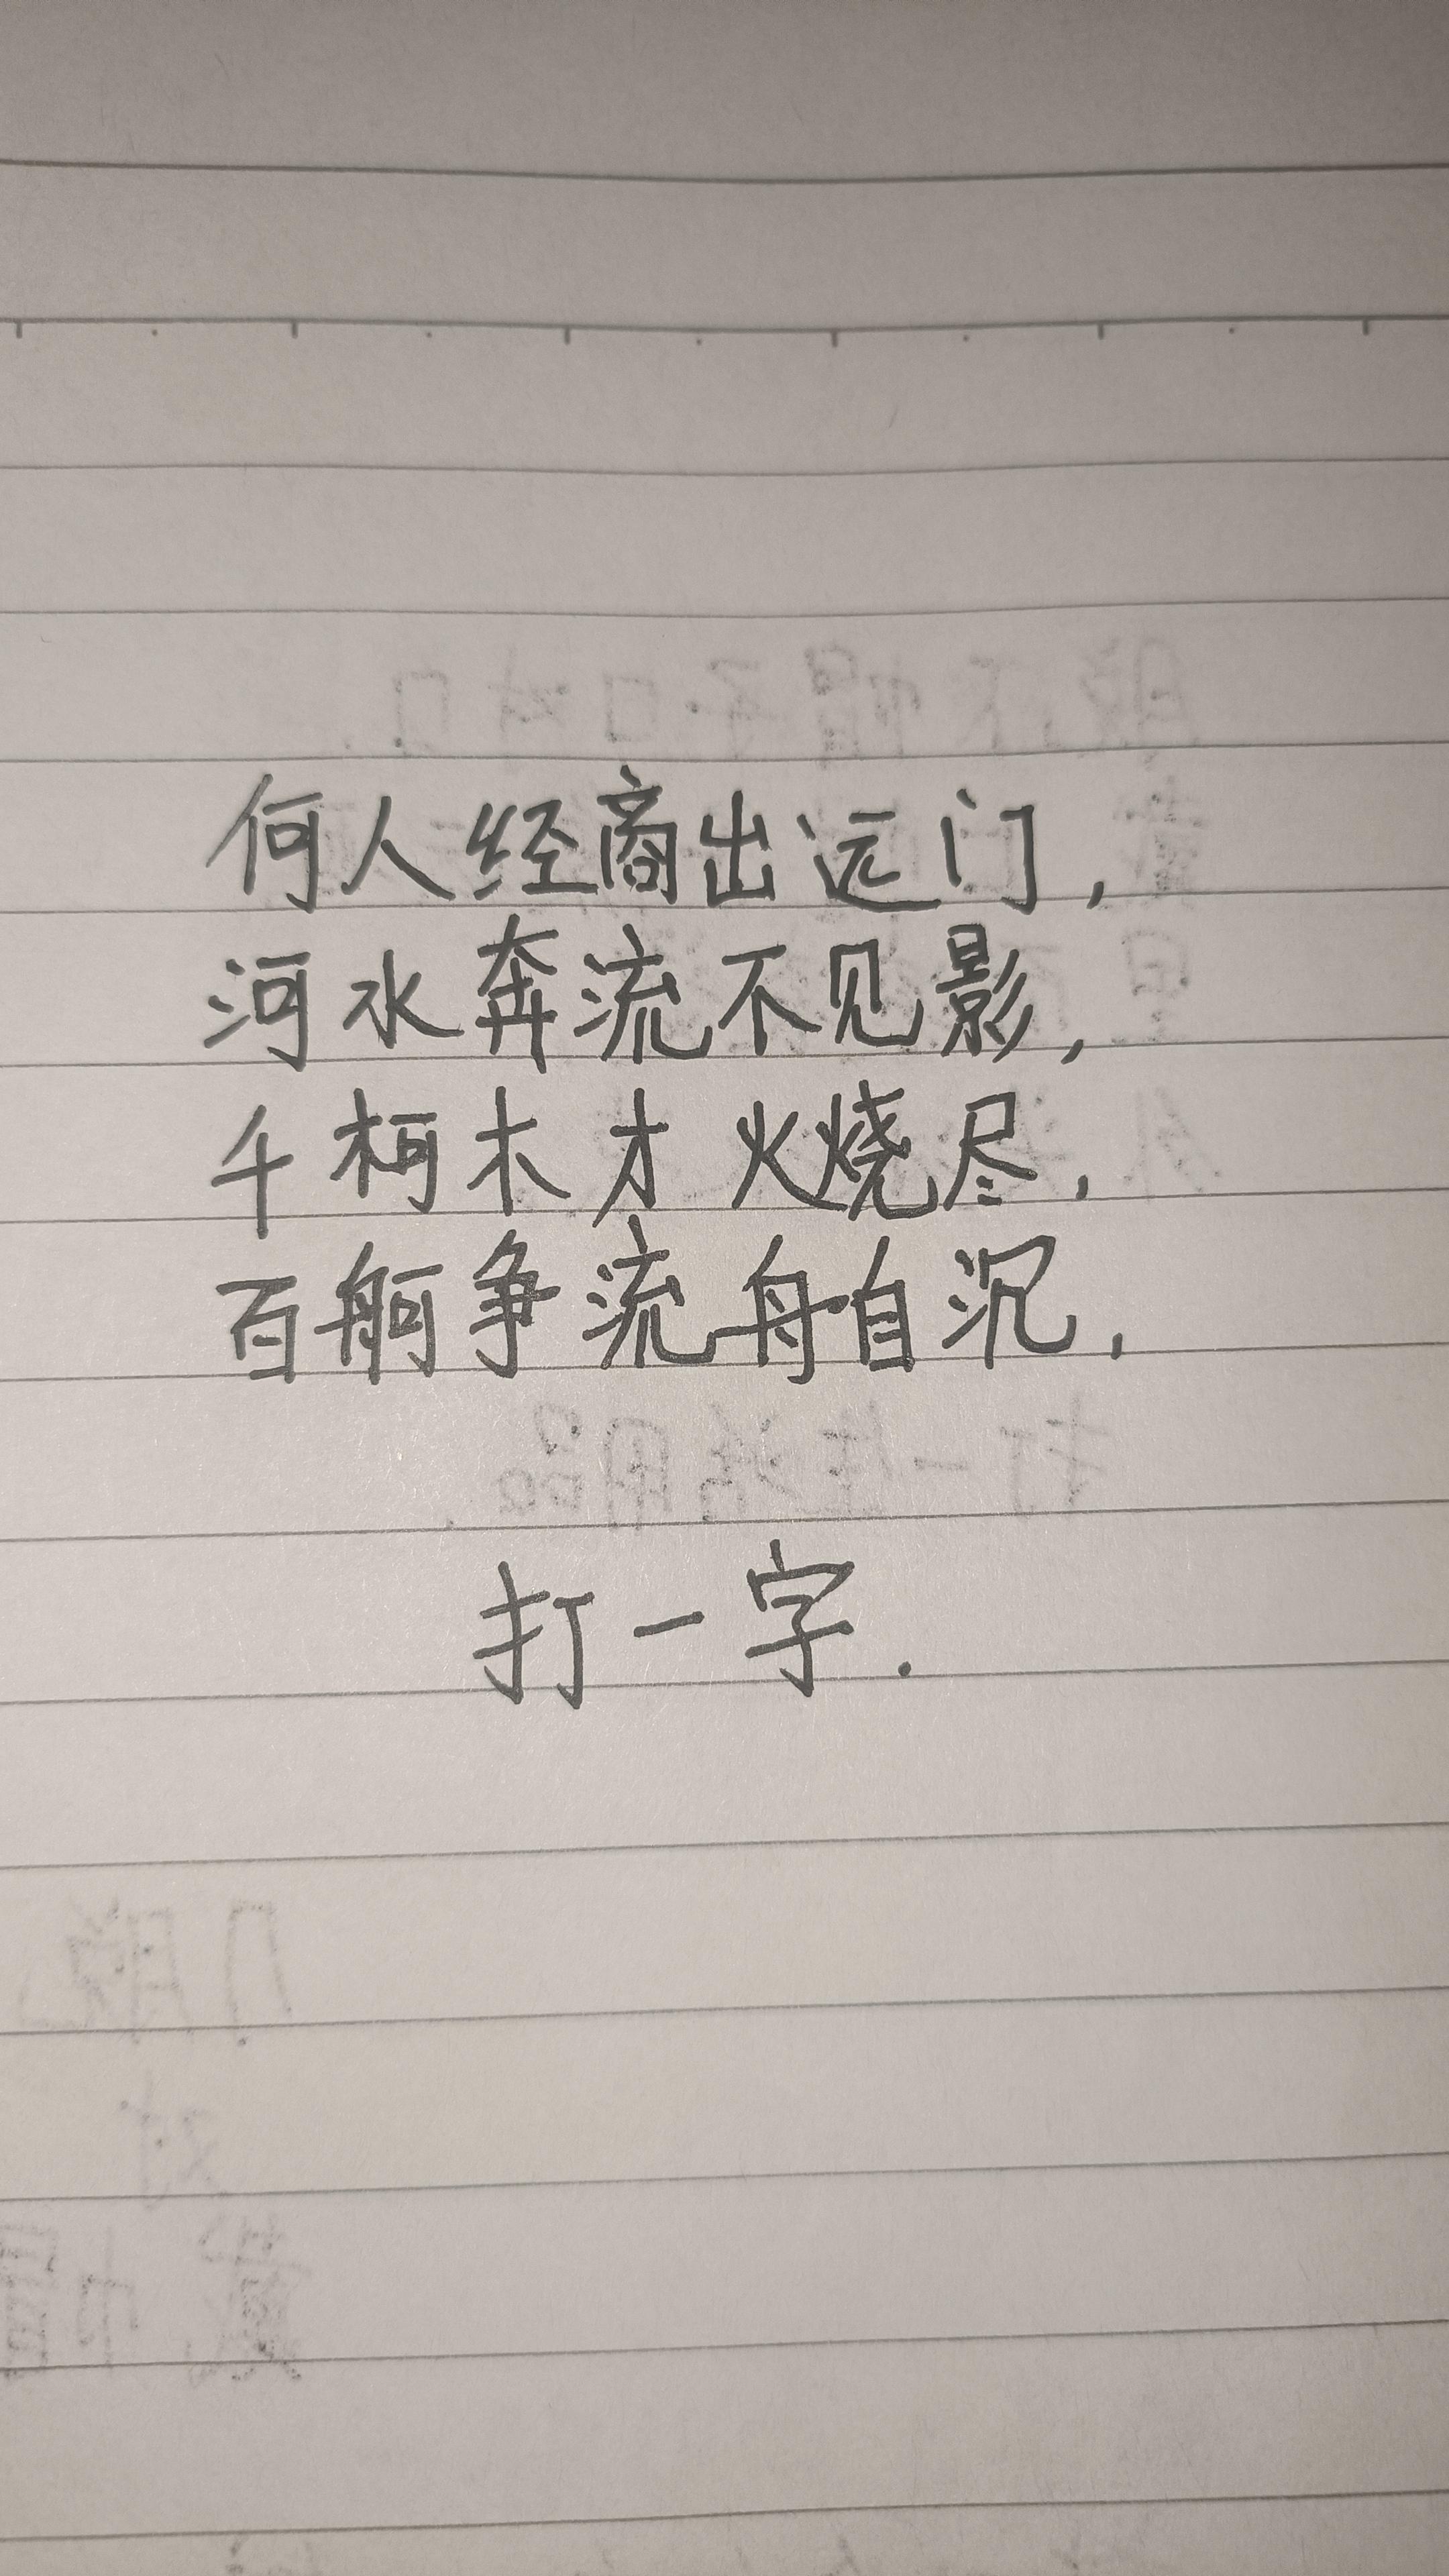 何人经商出远门，
河水奔流不见影，
千柯木才火烧尽，
百舸争流舟自沉，
打一字.